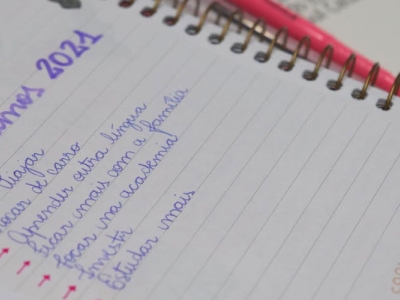 anos 2021
Viajar
ocar de carro
Aprender outra língua
Ficar mais com a família
Focar na academia
Investir
Estudar mais